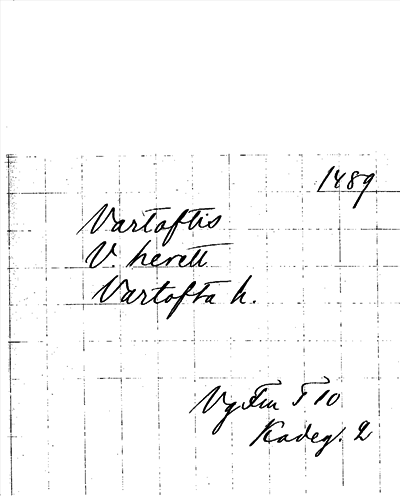 1489
Vartoftis
V. herett
Vartofta h.
Vg Fm T 10
Kadeg. 2